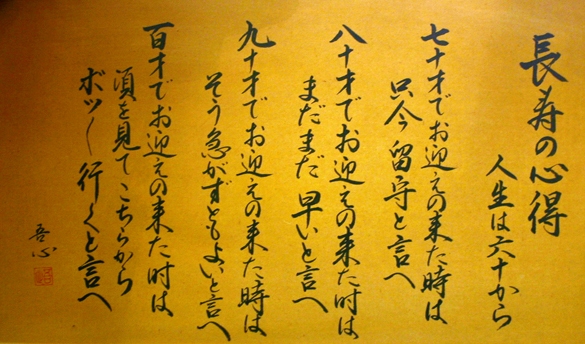 長寿の心得
人生は六十から
七十才でお迎えの来た時は
只今留守と言へ
八十才でお迎えの来た時は
まだまだ早いと言へ
九十才でお迎えの来た時は
そう急がずともよいと言へ
百才でお迎えの来た時は
頃を見てこちらから
ボツ〱行くと言へ
吾心